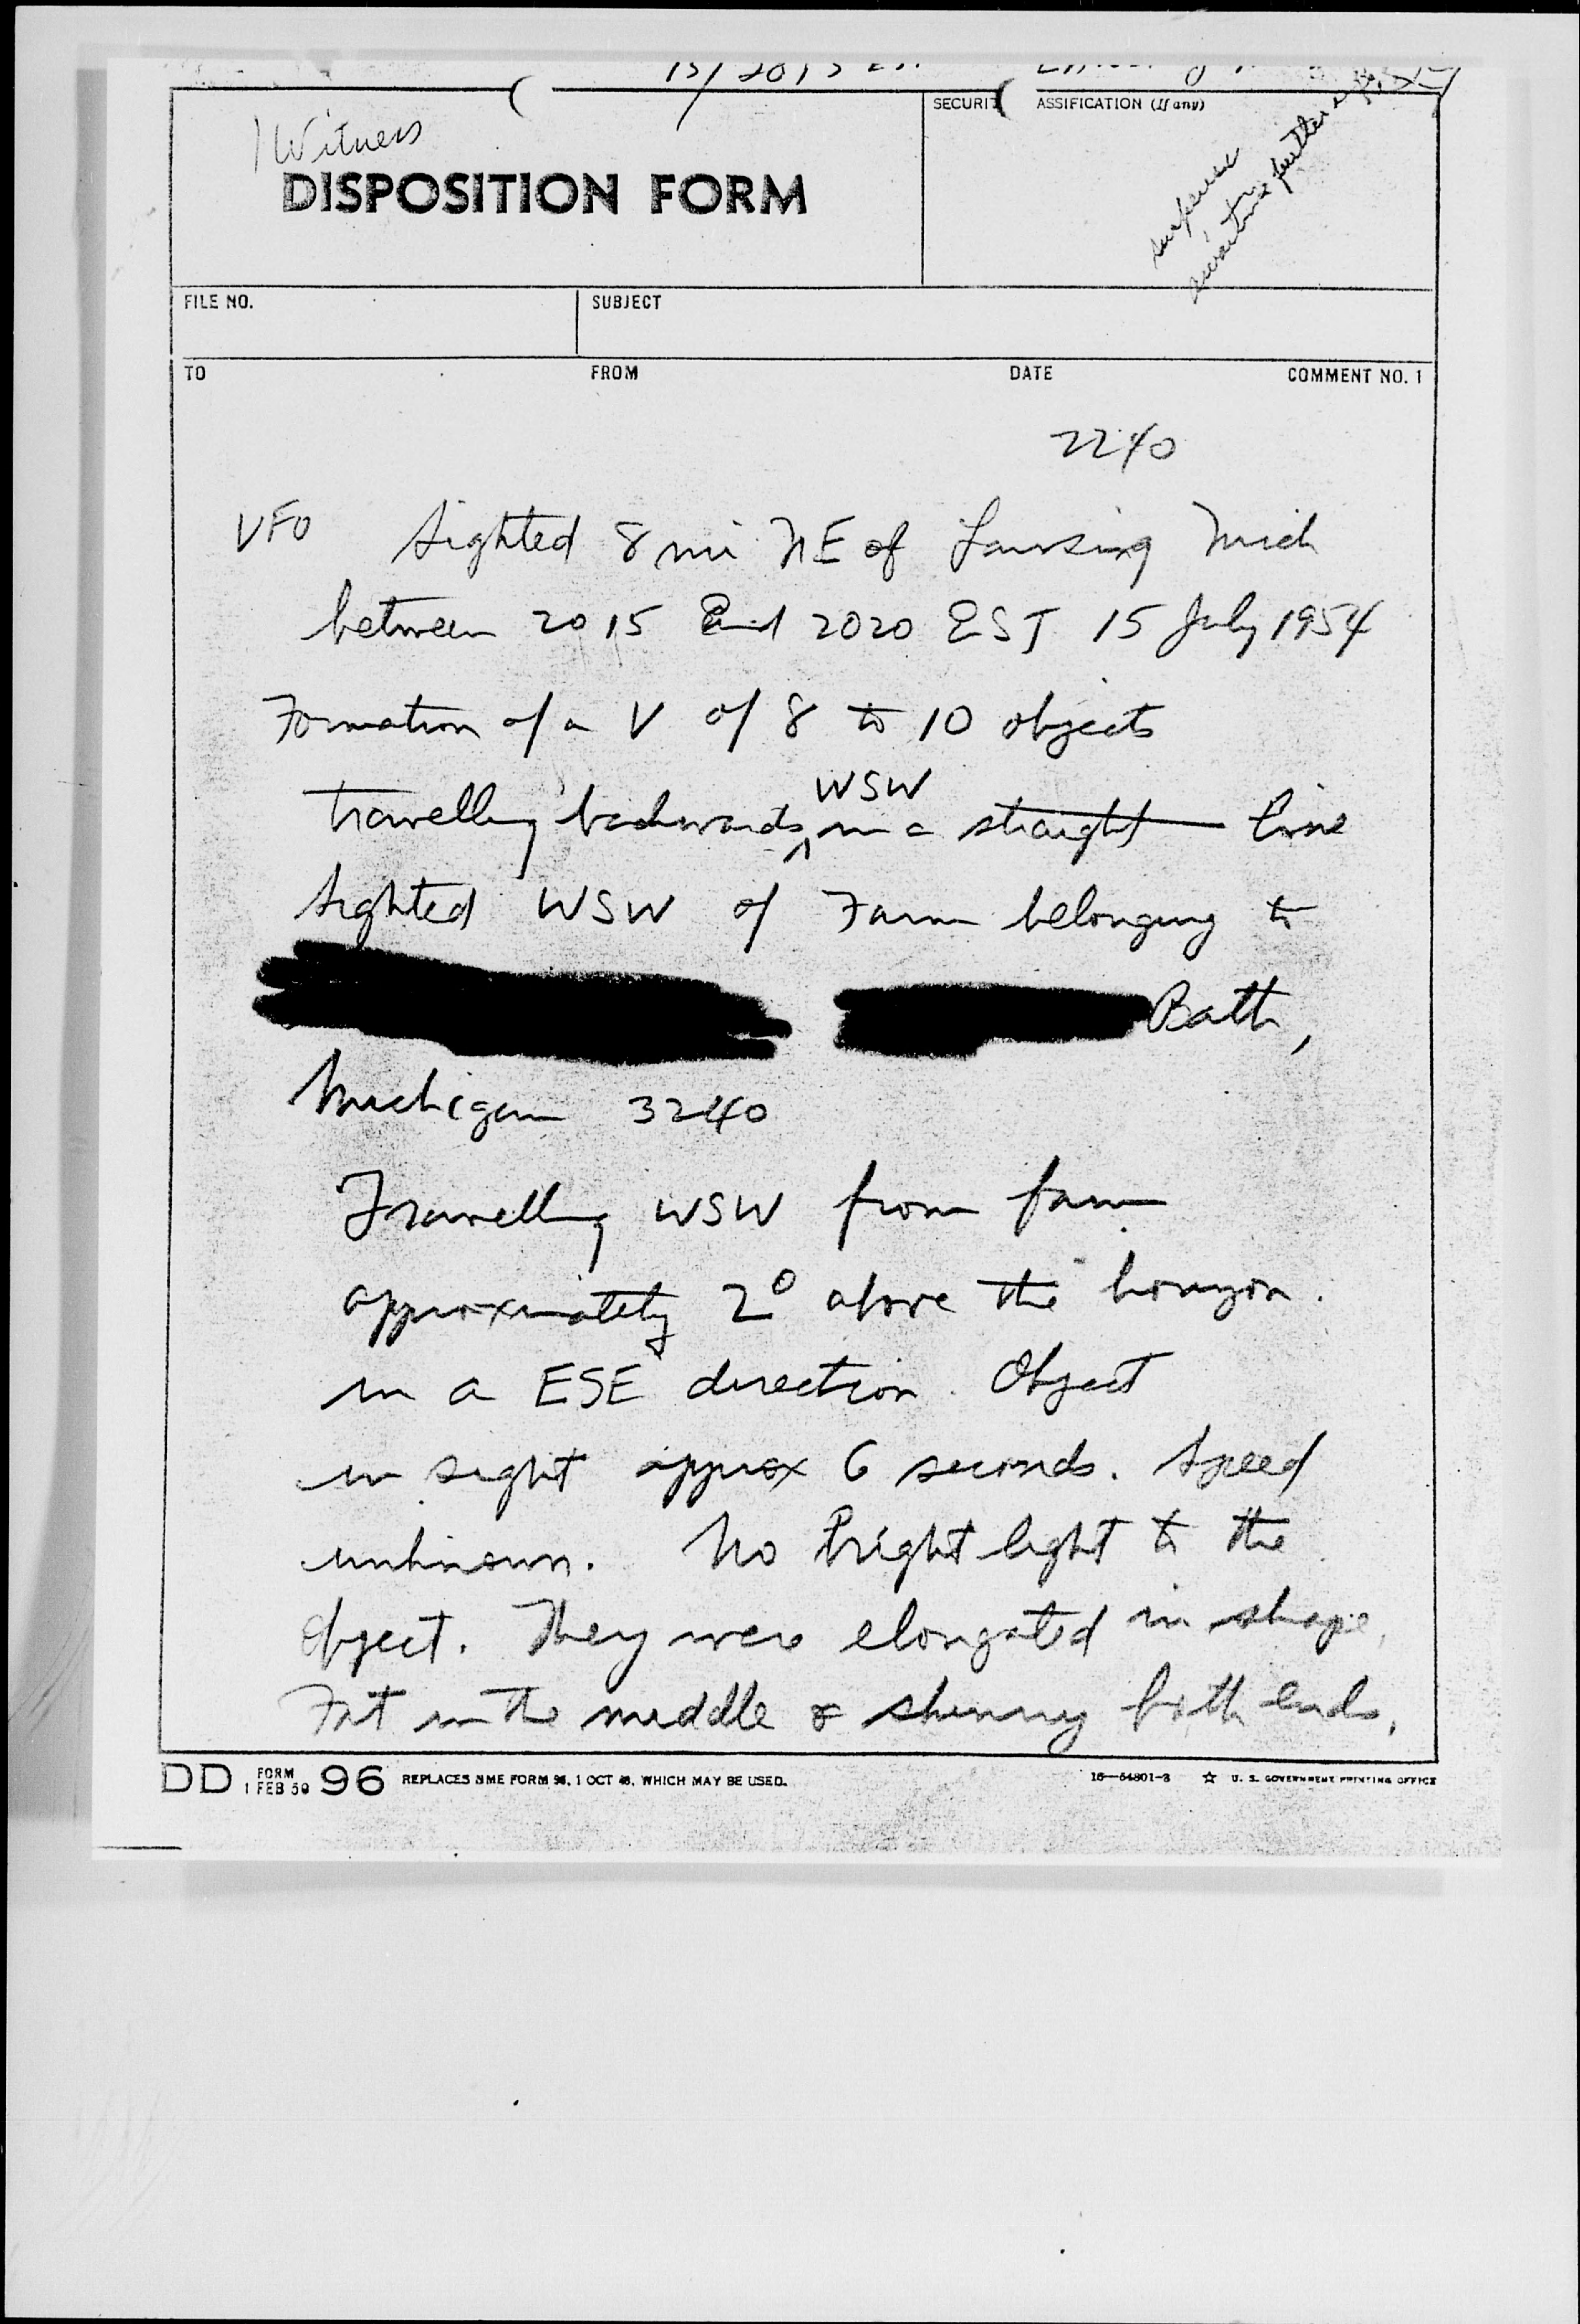 15/2015 EST
SECURIT ASSIFICATION (If any)
1 Witness
suspense
awaiting further info
DISPOSITION FORM
FILE NO. SUBJECT
TO FROM DATE COMMENT NO. 1
2240
VFO Sighted 8 mi NE of Lansing Mich
between 2015 and 2020 EST 15 July 1954
Formation of a V of 8 to 10 objects
travelling backwards WSW in a straight line
Sighted WSW of Farm belonging to
Bath,
Michigan 3240
Travelling WSW from farm
approximately 2° above the horizon.
in a ESE direction. Object
in sight approx 6 seconds. Speed
unknown. No bright light to the
object. They were elongated in shape,
Fat in the middle & skinny both ends.
DD FORM 1 FEB 50 96 REPLACES NME FORM 96, 1 OCT 48, WHICH MAY BE USED. 16—54801-3 ☆ U. S. GOVERNMENT PRINTING OFFICE